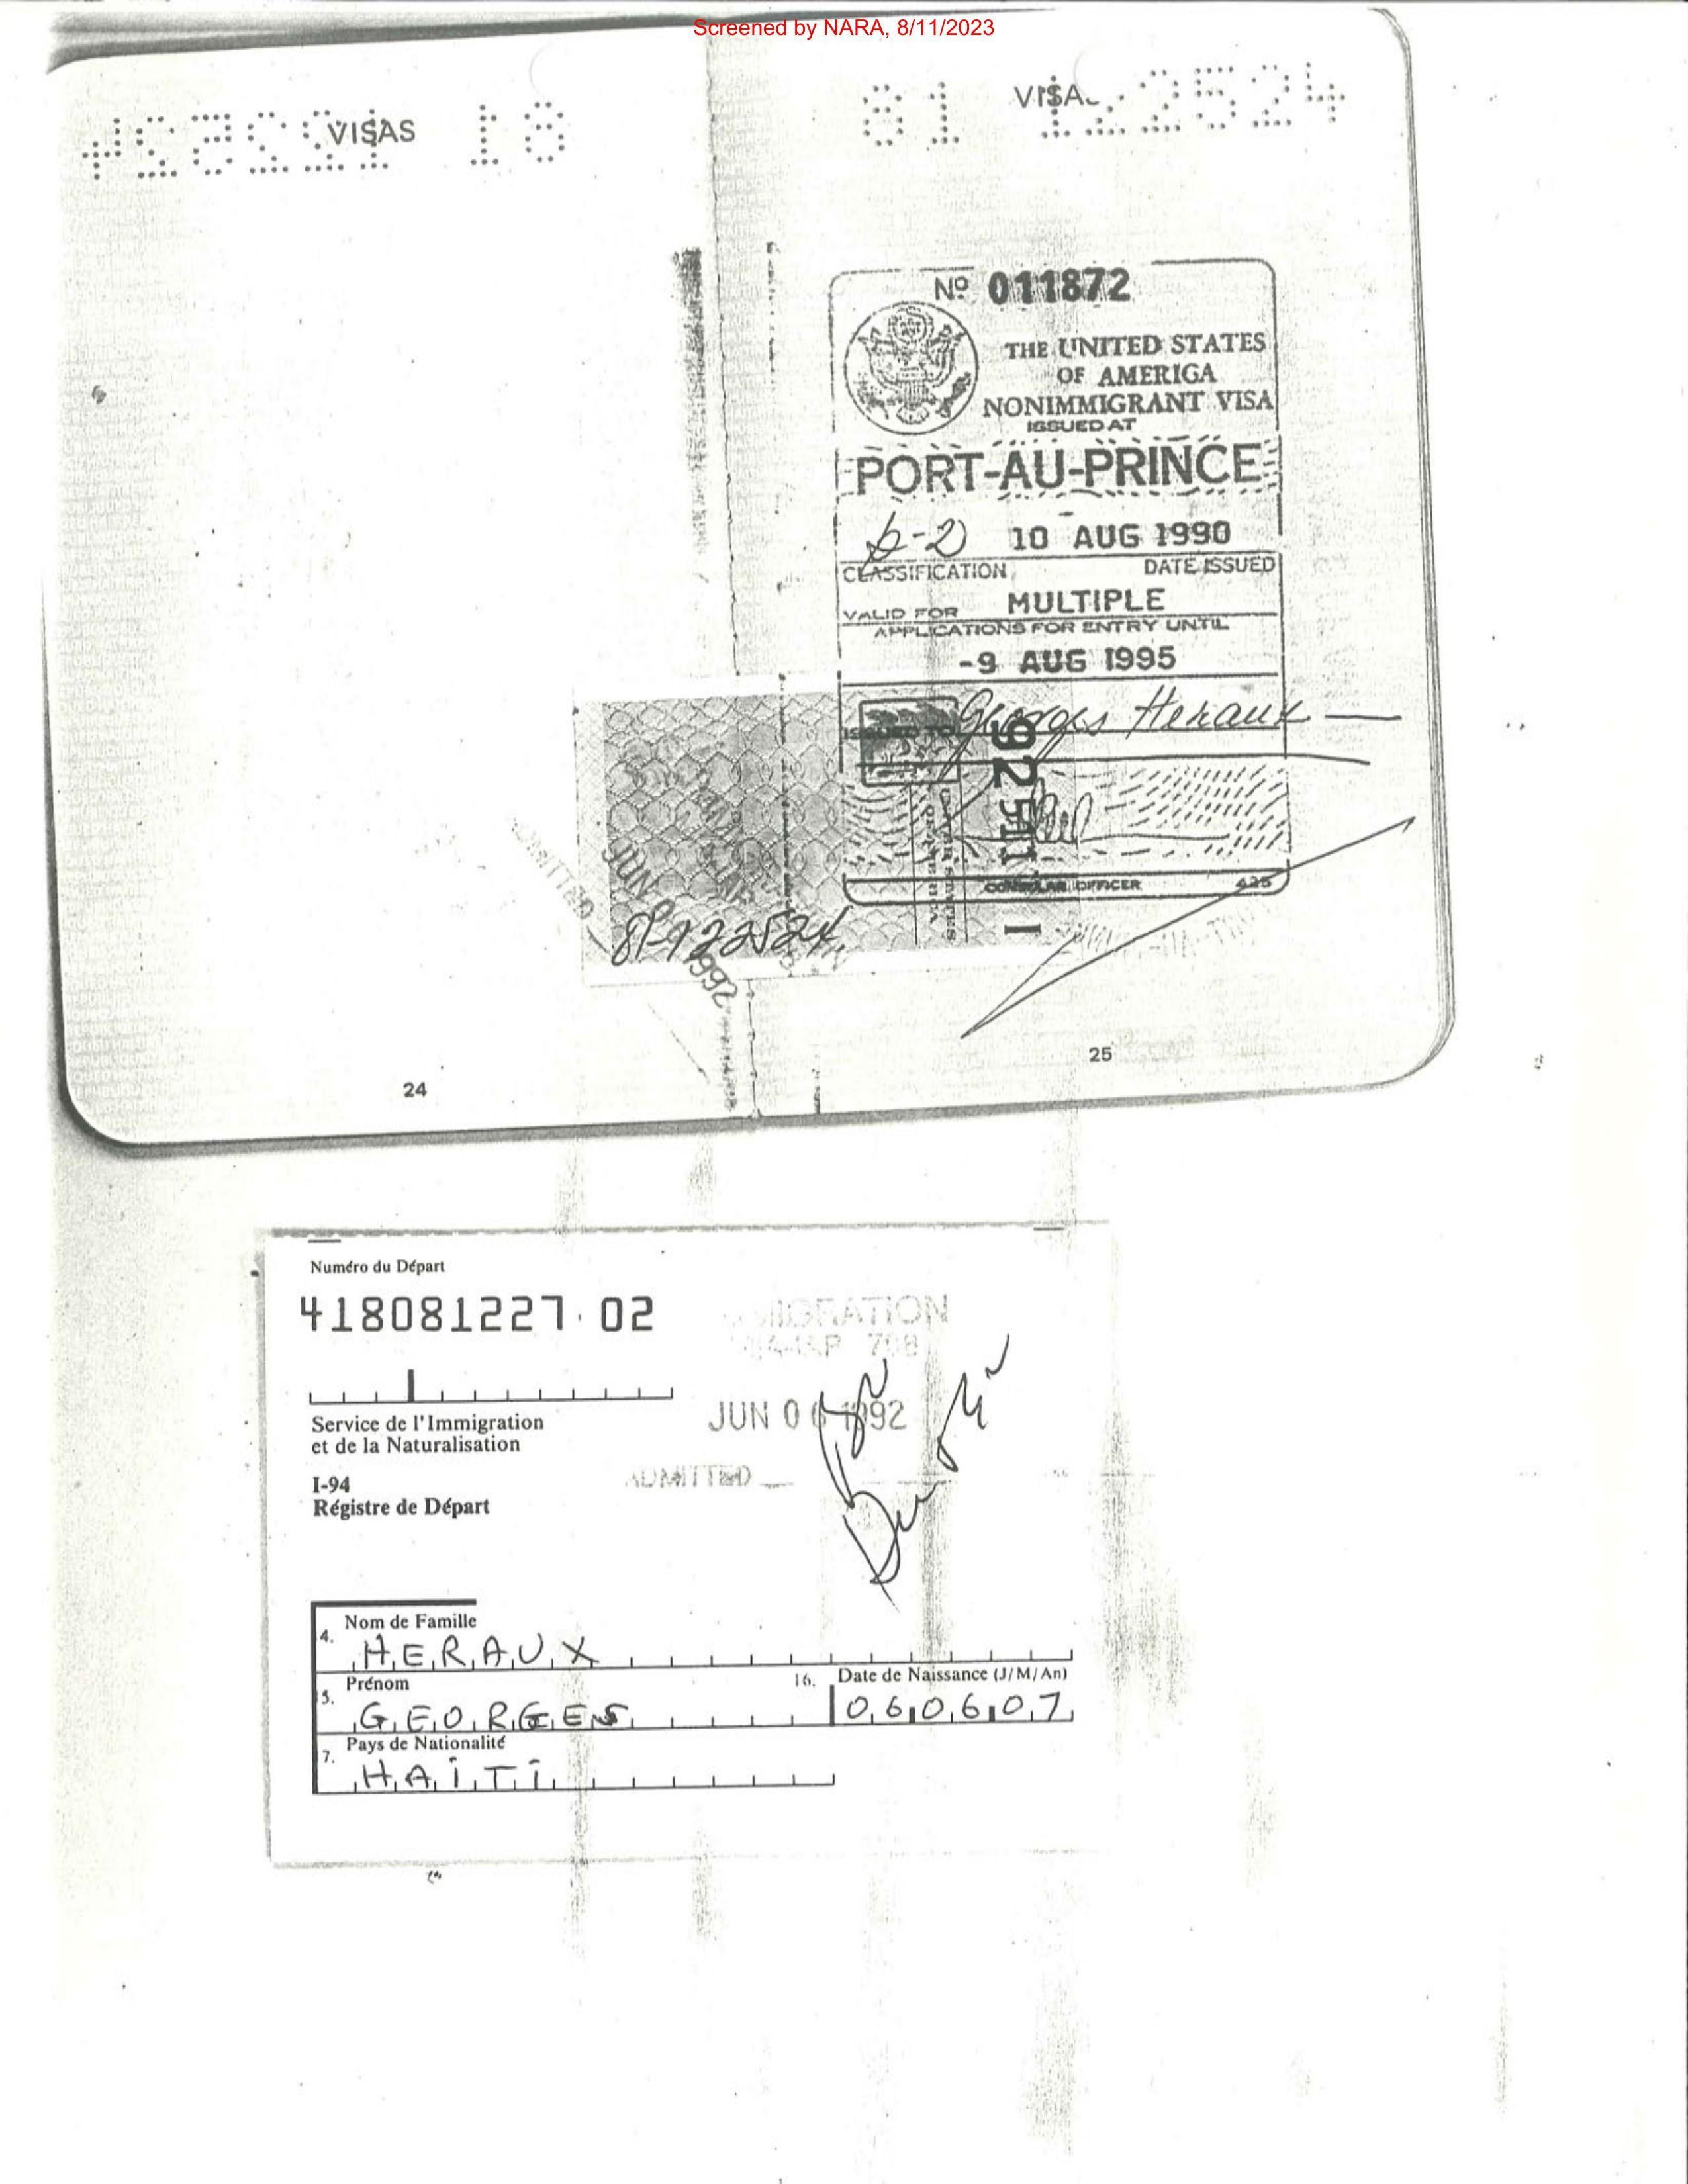 Screened by NARA, 8/11/2023
VISAS
81 122524
Nº 011872
THE UNITED STATES
OF AMERICA
NONIMMIGRANT VISA
ISSUED AT
PORT-AU-PRINCE
b-2 10 AUG 1990
CLASSIFICATION DATE ISSUED
VALID FOR MULTIPLE
APPLICATIONS FOR ENTRY UNTIL
-9 AUG 1995
ISSUED TO Georges Heraux
CONSULAR OFFICER 425
ADMITTED
JUN
1992
25
24
Numéro du Départ
418081227 02
JUN 0 1992
Service de l'Immigration
et de la Naturalisation
ADMITTED
I-94
Régistre de Départ
4. Nom de Famille
HERAUX
5. Prénom
16. Date de Naissance (J/M/An)
GEORGES
060607
7. Pays de Nationalité
HAITI